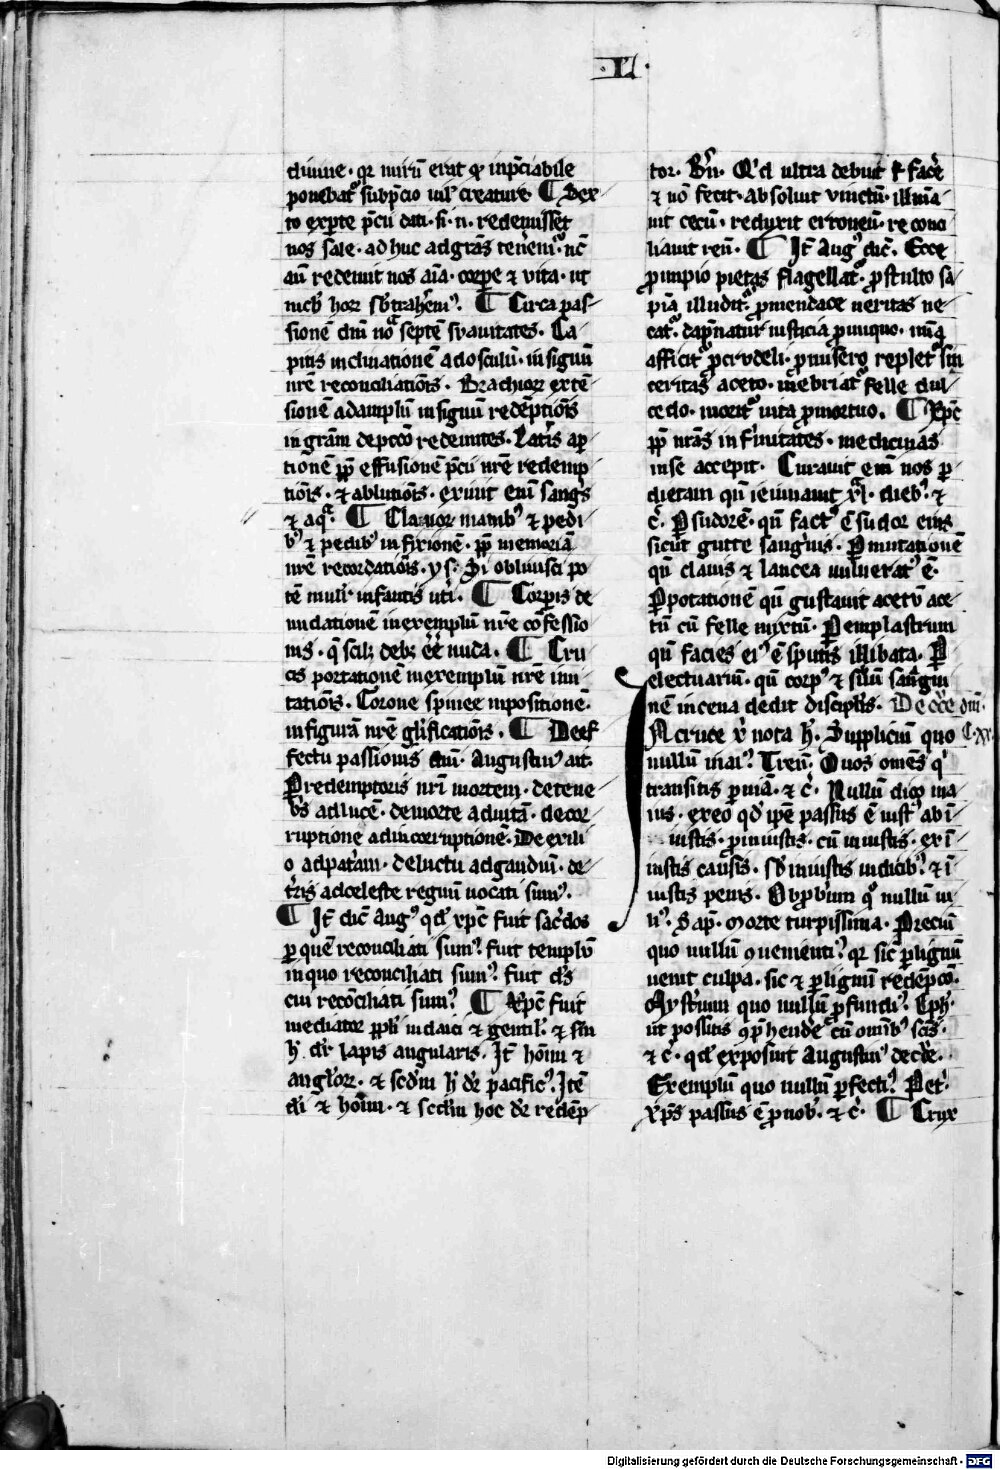 .II.
diuine · qr mirū erat qd inp̄ciabile
ponebat᷒ sub p̄cio uil᷒ creature · ¶ Sex
to exꝑte p̄cii dati · si · n · redemisset
nos sale · adhuc ad gr̄as teneremur nc̄
aū redemit nos aīa · corꝑe ⁊ uita · ut
¶ Circa pas
sionē dn̄i septē suauitates · Ca
pitis inclinationē ad osculū · in signū
nr̄e reconciliatiōis · Brachioꝝ extē
sionē ad amplū in signū redēptiōis
Lat̄is aꝑ
tionē ꝓp̄ effusionē p̄cii nr̄e redemp
tiōis · ⁊ ablutiōis · exiuit enī sangis
⁊ aq̄ · ¶ Clauoꝝ manibꝰ ⁊ pedi
bꝰ ⁊ pedibꝰ infixionē · ꝓp̄ memoriā
nr̄e recordatiōis · ys · Si obliuisci po
tē mulier infantis · ¶ Corꝑis de
nudationē in exemplū nr̄e cōfessio
nis · q̄ scilꝫ debꝫ eē nuda · ¶ Cru
cis portationē in exemplū nr̄e imi
tatiōis · Corone spinee inpositionē
in figurā nr̄e gl̄ificatiōis · ¶ De ef
fectu passionis · Augustinꝰ ait
Redemptoris nr̄i mortem · de tene
bris ad lucē · de morte ad uitā · de cor
ruptione ad incorruptionē · De exili
o ad patriam · de luctu ad gaudiū · de
terris ad celeste regnū uocati sumꝰ ·
¶ It̄ dic̄ Augꝰ qd xp̄c fuit sac̄dos
ꝑ quē reconciliati sumꝰ · fuit templū
in quo reconciliati sumꝰ · fuit ds̄
cui recōciliati sumꝰ · ¶ Xp̄c fuit
mediator iudaici ⁊ gentil · ⁊ scdm
h̄ dr̄ lapis angularis · It̄ hōim ⁊
angl̄oꝝ · ⁊ scdm h̄ dr̄ pacificꝰ · Itē
dei ⁊ hōim · ⁊ scdm hoc dr̄ redēp
tor · Bn̄ · Qid ultra debuit facere
⁊ nō fecit · absoluit uinctū · illūia
uit cecū · reduxit erroneū · recon
liauit reū · ¶ It̄ Augꝰ dic̄ · Ecce
ꝓ impio pietas flagellat᷒ · ꝓ stulto sa
pīa illudit᷒ · ꝓ mendace ueritas ne
cat᷒ · dāpnatur iusticia ꝓ iniquo · mīa
afficit᷒ ꝓ crudeli · ꝓ misero replet᷒ sin
ceritas aceto · inebriat᷒ felle dul
cedo · morit᷒ uita ꝓ mortuo · ¶ Xp̄c
ꝓp̄ nr̄as infirmitates · medicinas
in se accepit · Curauit enī nos ꝑ
dietam qn̄ ieiunauit xl · diebꝰ · ⁊
c̄ · Ꝑ sudorē · qn̄ factꝰ ē sudor eius
sicut gutte sanguis · Ꝑ mutationē
qn̄ clauis ⁊ lancea uulneratꝰ ē ·
Ꝑ potationē qn̄ gustauit acetū ace
tū cū felle mixtū · Ꝑ emplastrum
qn̄ facies eiꝰ ē sputis illibata · Ꝑ
electuariū · qn̄ corpꝰ ⁊ suū sangui
nē in cena dedit discipl̄is · De cruce dn̄i ·
A cruce v̄ nota h̄ · Suppliciū quo C · xv
nullū maiꝰ · Tren̄ · O uos omēs qi
transitis ꝑ uiā · ⁊ c̄ · Nullū dico ma
ius · ex eo qd ip̄e passus ē iustꝰ ab ī
iustis · ꝓ iniustis · cū iniustis · ex ī
iustis causis · sb iniustis iudicibꝰ · ⁊ ī
iustis penis · Obꝓbrium quo nullū ui
liꝰ · Sap̄ · Morte turpissima · Preciū
quo nullū ꝯuenientiꝰ · qr sic̄ ꝑ lignū
uenit culpa · sic ⁊ ꝑ lignū redēpcō ·
Mysterium quo nullū ꝓfundiꝰ · Eph̄ ·
ut possitis ꝯp̄hendere cū omībꝰ sc̄is ·
⁊ c̄ · qd exposuit Augustinꝰ de cruce ·
Exemplū quo nullū ꝑfectiꝰ · Pet̄ ·
Xp̄s passus ē ꝓ nobꝰ · ⁊ c̄ · ¶ Crux
Digitalisierung gefördert durch die Deutsche Forschungsgemeinschaft - DFG